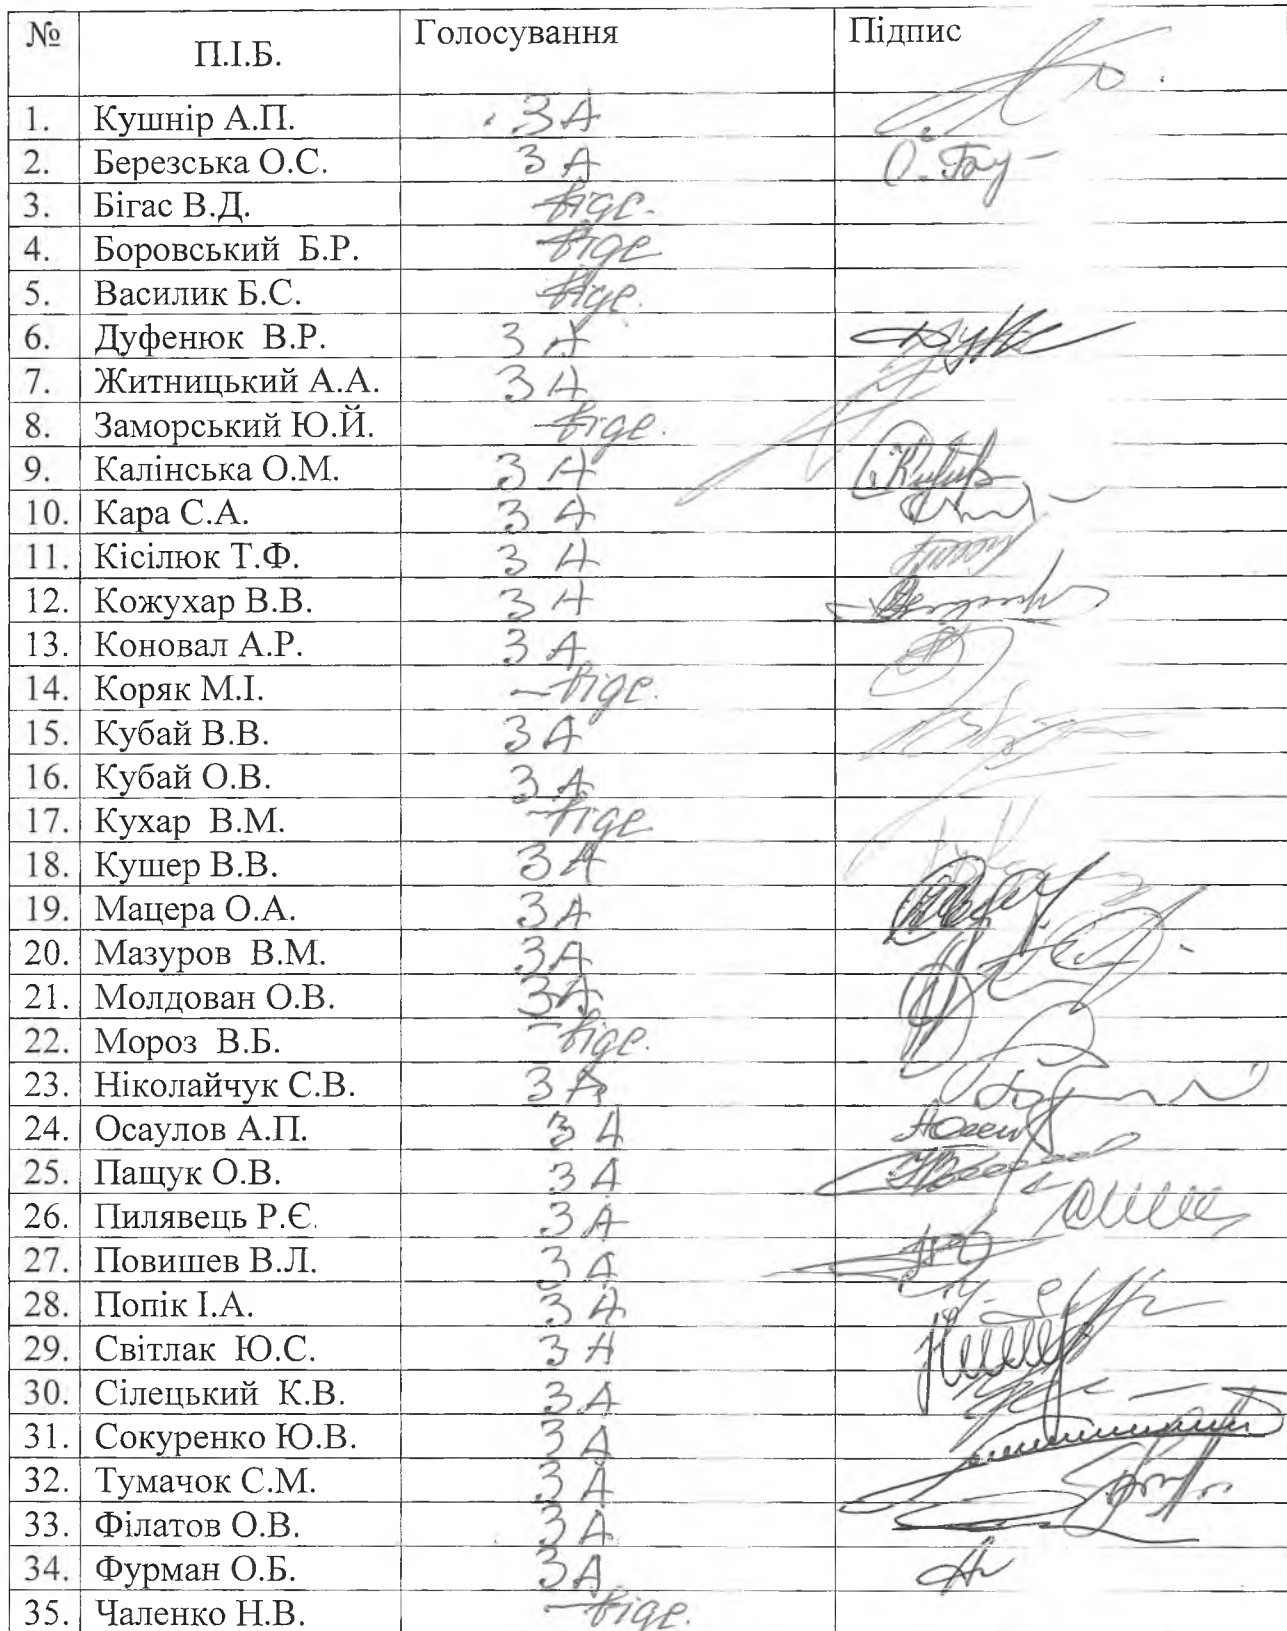 № П.І.Б. Голосування Підпис
1. Кушнір А.П. ЗА
2. Березська О.С. ЗА
3. Бігас В.Д. відс.
4. Боровський Б.Р. відс
5. Василик Б.С. відс.
6. Дуфенюк В.Р. ЗА
7. Житницький А.А. ЗА
8. Заморський Ю.Й. відс.
9. Калінська О.М. ЗА
10. Кара С.А. ЗА
11. Кісілюк Т.Ф. ЗА
12. Кожухар В.В. ЗА
13. Коновал А.Р. ЗА
14. Коряк М.І. – відс.
15. Кубай В.В. ЗА
16. Кубай О.В. ЗА
17. Кухар В.М. відс
18. Кушер В.В. ЗА
19. Мацера О.А. ЗА
20. Мазуров В.М. ЗА
21. Молдован О.В. ЗА
22. Мороз В.Б. – відс.
23. Ніколайчук С.В. ЗА
24. Осаулов А.П. ЗА
25. Пащук О.В. ЗА
26. Пилявець Р.Є. ЗА
27. Повишев В.Л. ЗА
28. Попік І.А. ЗА
29. Світлак Ю.С. ЗА
30. Сілецький К.В. ЗА
31. Сокуренко Ю.В. ЗА
32. Тумачок С.М. ЗА
33. Філатов О.В. ЗА
34. Фурман О.Б. ЗА
35. Чаленко Н.В. – відс.